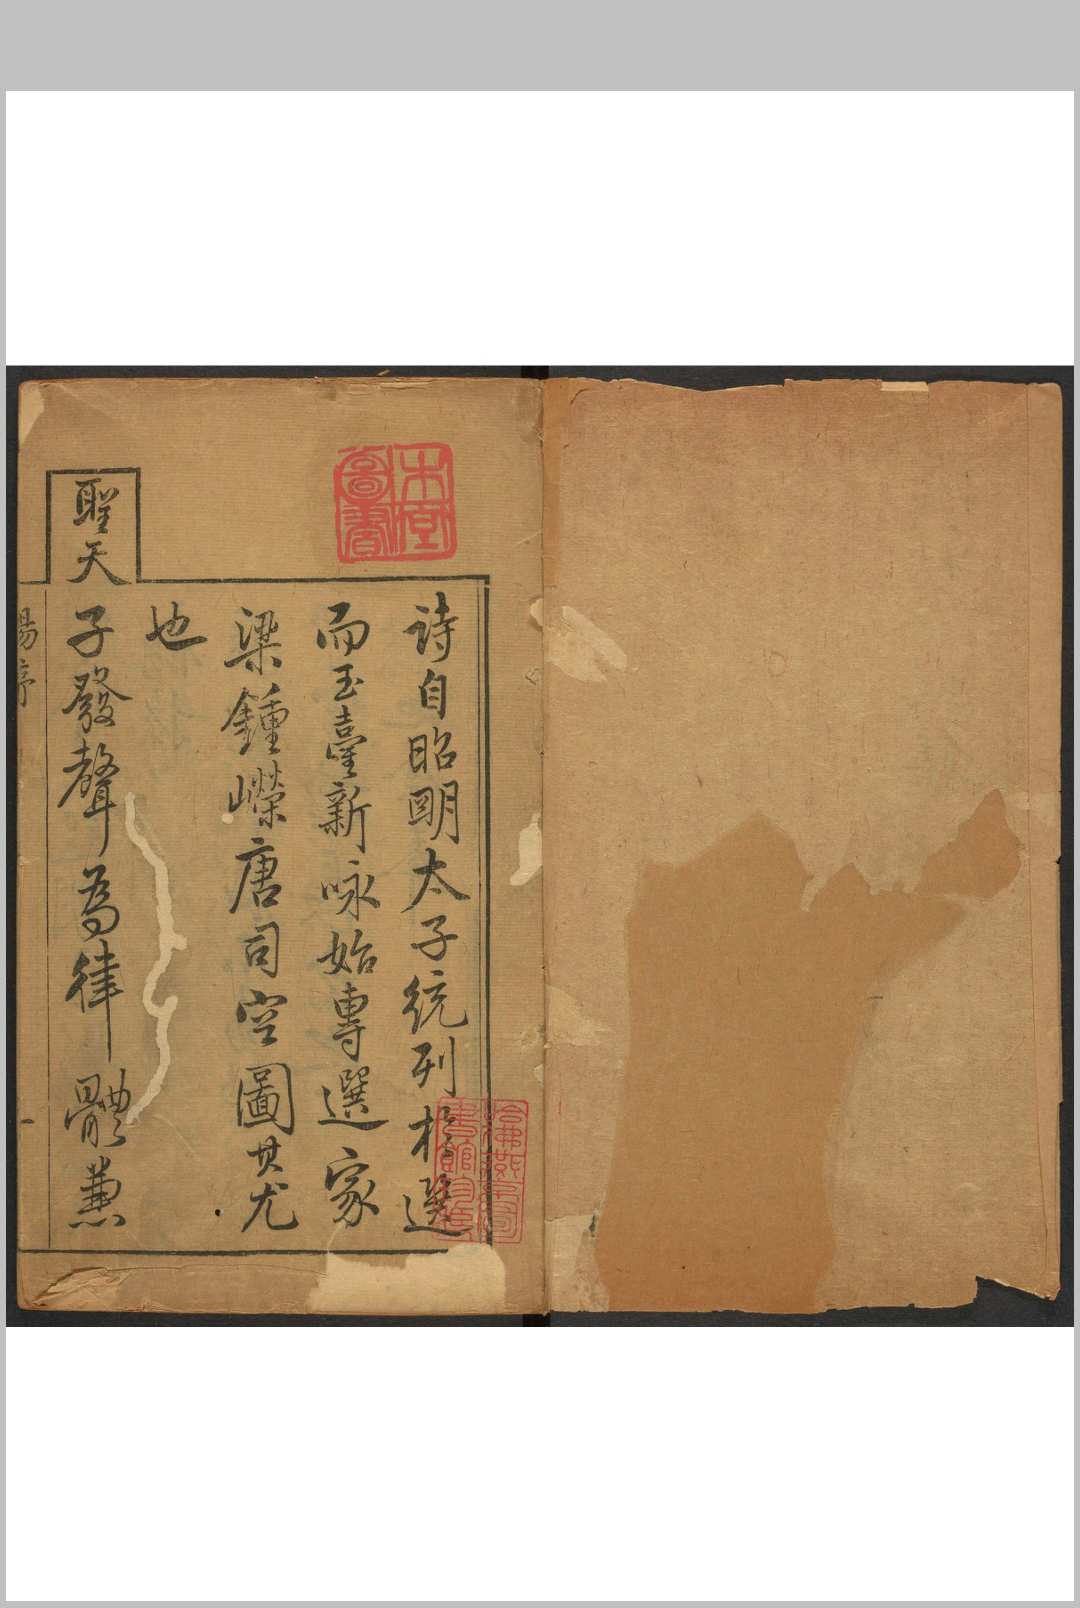 詩自昭明太子統列於選
而玉臺新咏始專選家
梁鍾嶸唐司空圖其尤
也
聖天
子發聲為律體兼
楊序
一
圖書
哈佛燕